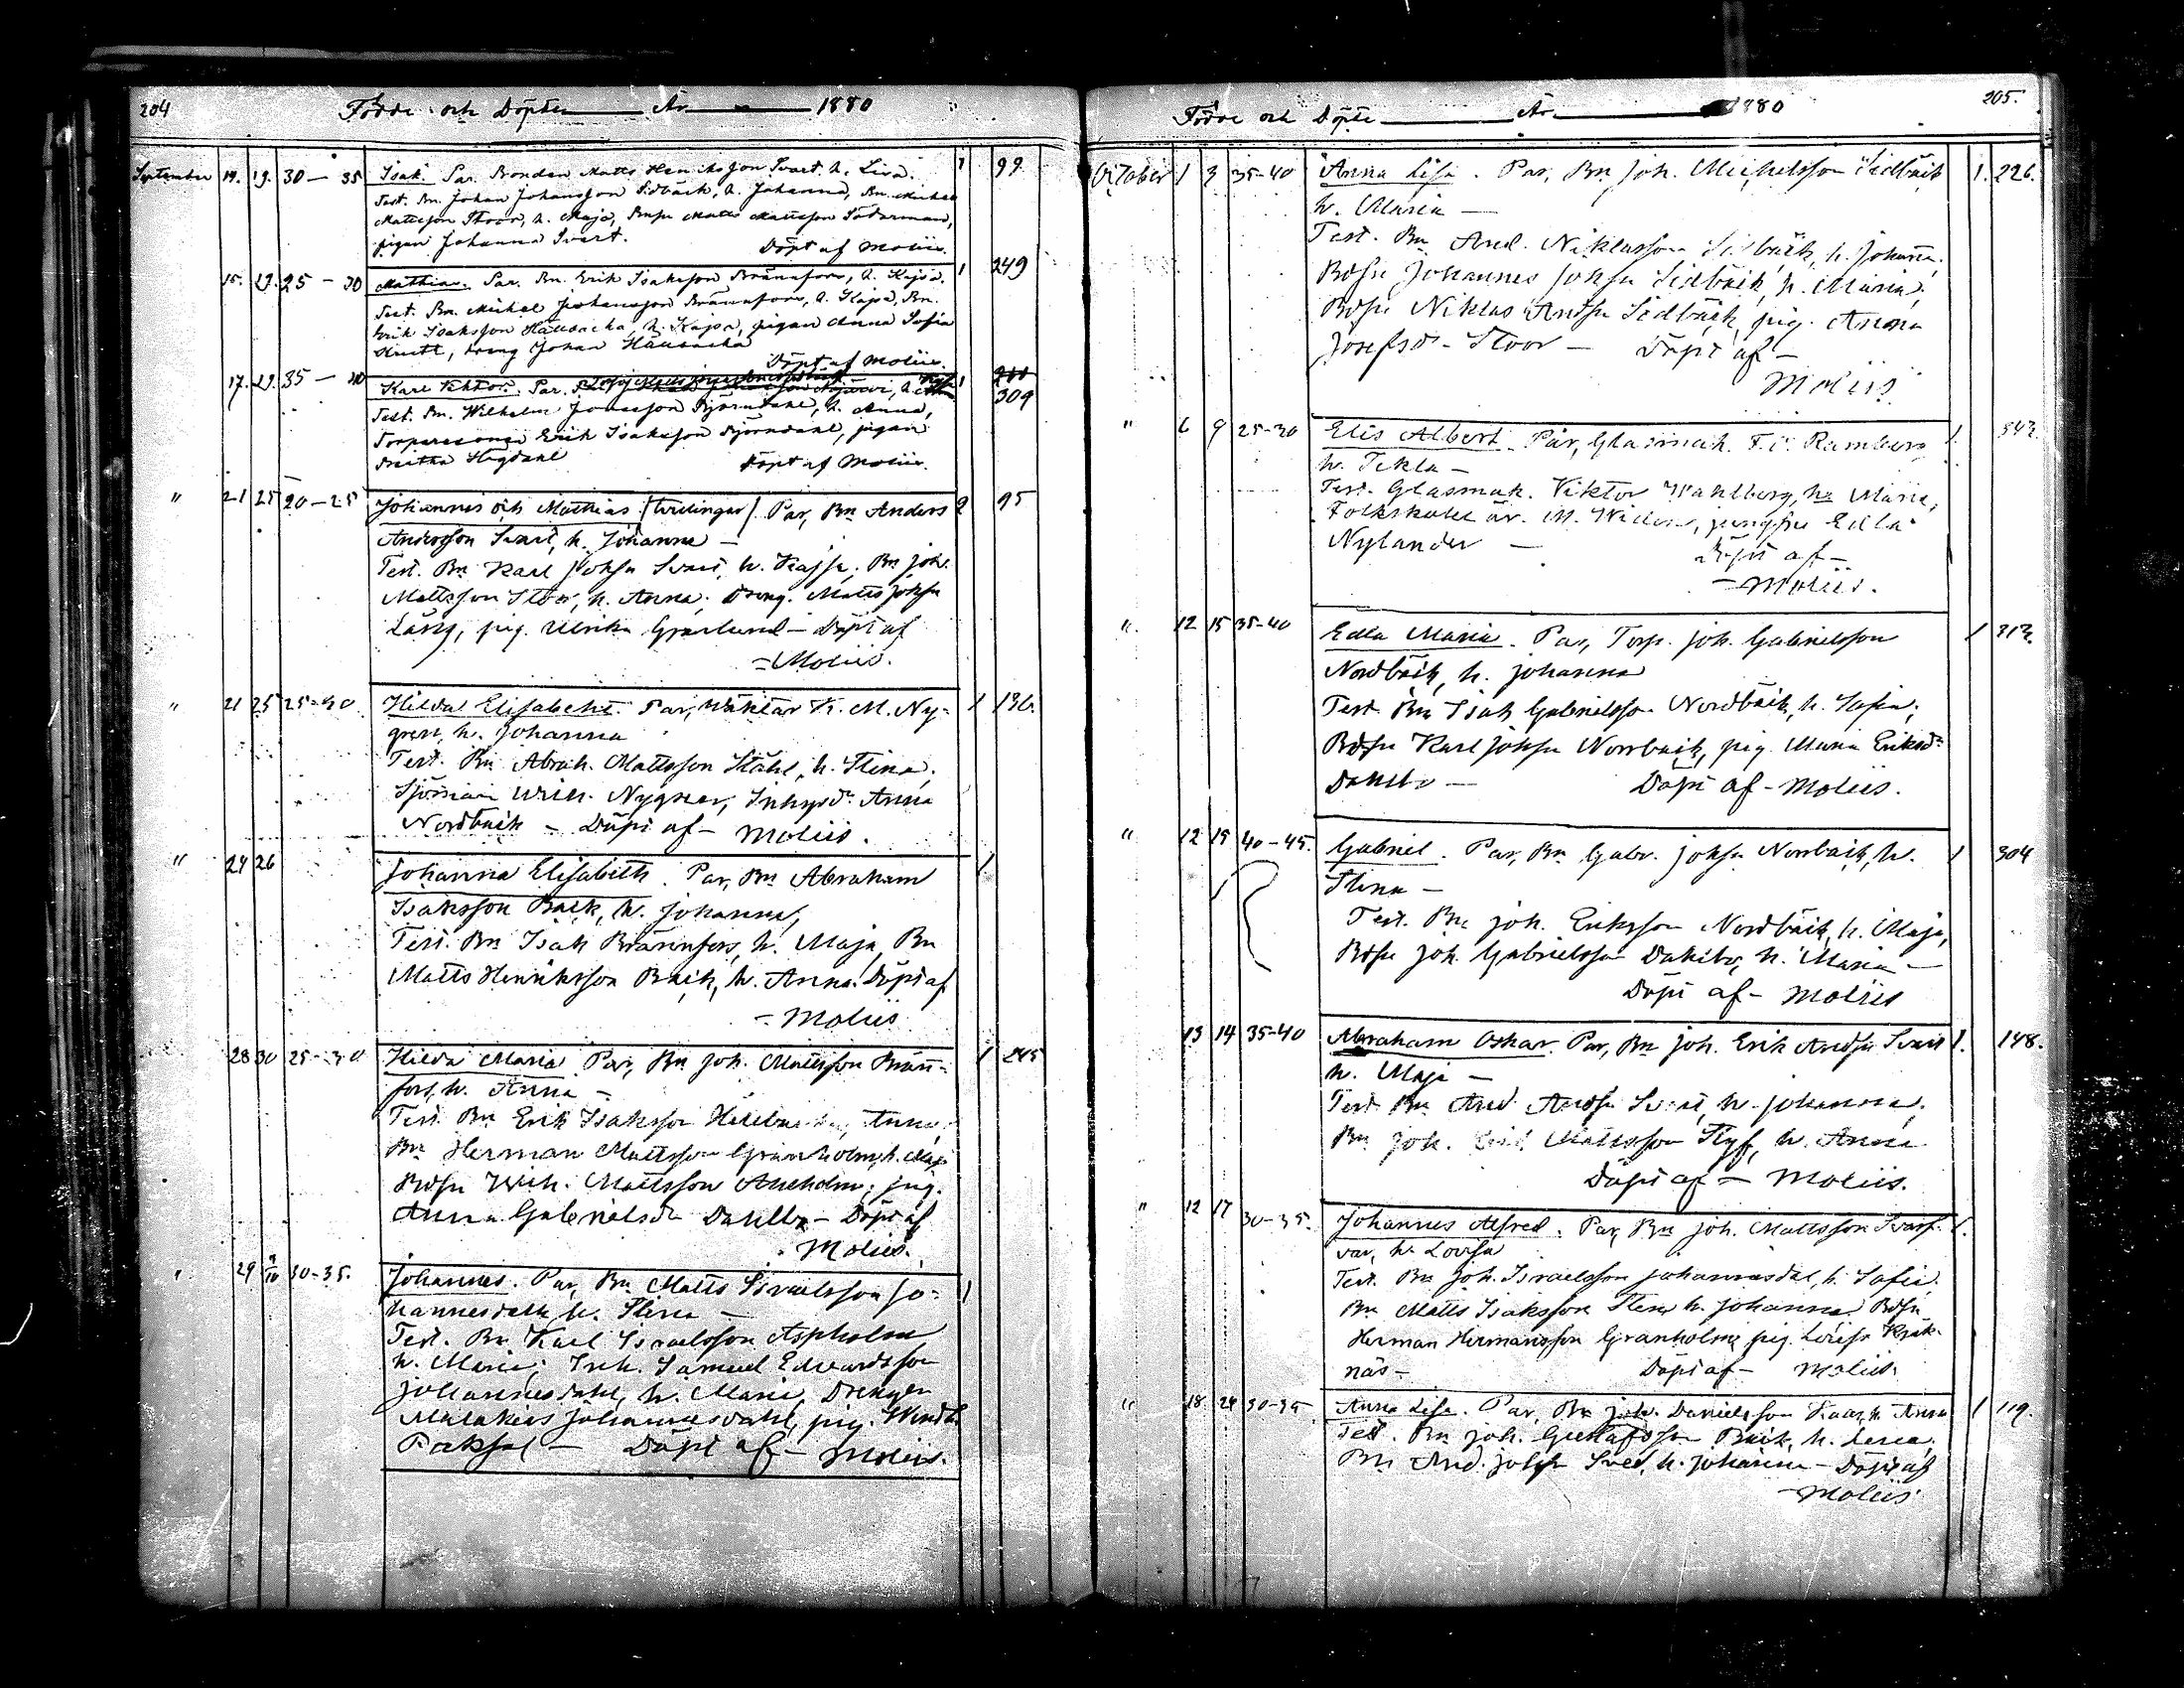 204
Födde och Döpte År 1880
September 14. 19. 30 — 35 Isak. Par. Bonden Matts Henriksson Svart, h. Lisa. 1 99
Test. Bn. Johan Johansson Sidbäck, h. Johanna, Bn. Michel
Mattsson Stoor, h. Maja, Matts Mattsson Söderman,
pigan Johanna Svart. Döpt af Moliis.
15. 19. 25 — 30 Mathias. Par. Bn. Erik Isaksson Brännfors, h. Kajsa. 1 249
Test. Bn. Michel Johansson Brännfors, h. Kajsa, Bn.
Erik Isaksson Hällbacka, h. Kajsa, pigan Anna Sofia
dreng Johan Hällbacka Döpt af Moliis.
17. 19. 35 — 40 Karl Viktor. Par. 1 309
Test. Bn. Wilhelm Jonasson Björndahl, h. Anna,
Torparesonen Erik Isaksson Björndahl, pigan
Högdahl Döpt af Moliis.
" 21 25 20 — 25 Johannes och Mathias (tvillingar). Par, Bn Anders 2 95
Andersson Svart, h. Johanna —
Test. Bn Karl Johsn Svart, h. Kajsa; Bn Joh.
Mattsson Stoor, h. Anna; Dreng. Matts Johsn
Lång, pig. Ulrika Granlund — Döpt af
= Moliis.
" 21 25 25-30 Hilda Elisabeht. Par, Wäktar K. M. Ny- 1 136.
gren, h. Johanna
Test. Bn Abrah. Mattsson Ståhl, h. Stina;
Sjöman Wilh. Nygren, Anna
Nordbäck — Döpt af — Moliis.
" 24 26 Johanna Elisabeth. Par, Bn Abraham 1
Isaksson Back, h. Johanna,
Test. Bn Isak Brännfors, h. Maja, Bn
Matts Henriksson Back, h. Anna. Döpt af
= Moliis
28 30 25-30 Hilda Maria Par, Bn Joh. Mattsson Bränn- 1 245
fors, h. Anna —
Test. Bn Erik Isaksson Anna,
Bn Herman Mattsson Granholm, h. Maja
Bdsn Wilh. Mattsson pig.
Anna Gabrielsdr Dahlbo — Döpt af
Moliis.
" 29 3/10 30-35. Johannes. Par, Bn Matts Israelsson Jo- 1
hannesdahl, h. Stina —
Test. Bn Karl Israelsson Aspholm
h. Maria; Inh. Samuel Edvardsson
Johannesdahl, h. Maria, Drengen
Malakias Johannesdahl, pig.
Döpt af — Moliis.
205.
Födde och Döpte År 1880
October 1 3 35-40 Anna Lisa. Par, Bn Joh. Michelsson Sidbäck 1. 226.
h. Maria —
Test. Bn And. Niklasson Sidbäck, h. Johanna,
Bdsn Johannes Johsn Sidbäck, h. Maria;
Bdsn Niklas Andsn Sidbäck, pig. Anna
Josefsdr Stoor — Döpt af —
Moliis
" 6 9 25-30 Elis Albert. Par, Glasmak. Ramberg 1. 343.
h. Tekla —
Test. Glasmak. Viktor Wahlberg, h. Maria,
Folkskolelär. M. jungfru Edla
Nylander — Döpt af —
— Moliis.
". 12 15 35-40 Edla Maria. Par, Torp. Joh. Gabrielsson 1 313.
Nordbäck, h. Johanna
Test. Bn Isak Gabrielsson Nordbäck, h. Sofia;
Bdsn Karl Johsn Norrback, pig. Maria Eriksdr
Dahlbo — Döpt af — Moliis.
" 12 15 40-45. Gabriel. Par, Bn Gabr. Johsn Norrback, h. 1 304
Stina —
Test. Bn Joh. Eriksson Nordbäck, h. Maja,
Bdsn Joh. Gabrielsson Dahlbo, h. Maria —
Döpt af — Moliis
13 14 35-40 Abraham Oskar. Par, Bn Joh. Erik Andsn Svart 1. 148.
h. Maja —
Test. Bn And. Andsn Svart, h. Johanna;
Bn Joh. Erik Mattsson Styf, h. Anna
Döpt af — Moliis.
" 12 17 30-35. Johannes Alfred. Par, Bn Joh. Mattsson Svarf- 1.
var, h. Lovisa
Test. Bn Joh. Israelsson Johannesdal, h. Sofia.
Bn Matts Isaksson Sten, h. Johanna. Bdsn
Herman Hermansson Granholm, pig. Lovisa Kråk-
näs — Döpt af — Moliis.
" 18. 24 30-35 Anna Lisa. Par, Bn Joh. Danielsson h. Anna 1 119.
Test. Bn Joh. Gustafsson Back, h. Lena;
Bn And. Johsn h. Johanna — Döpt af
— Moliis